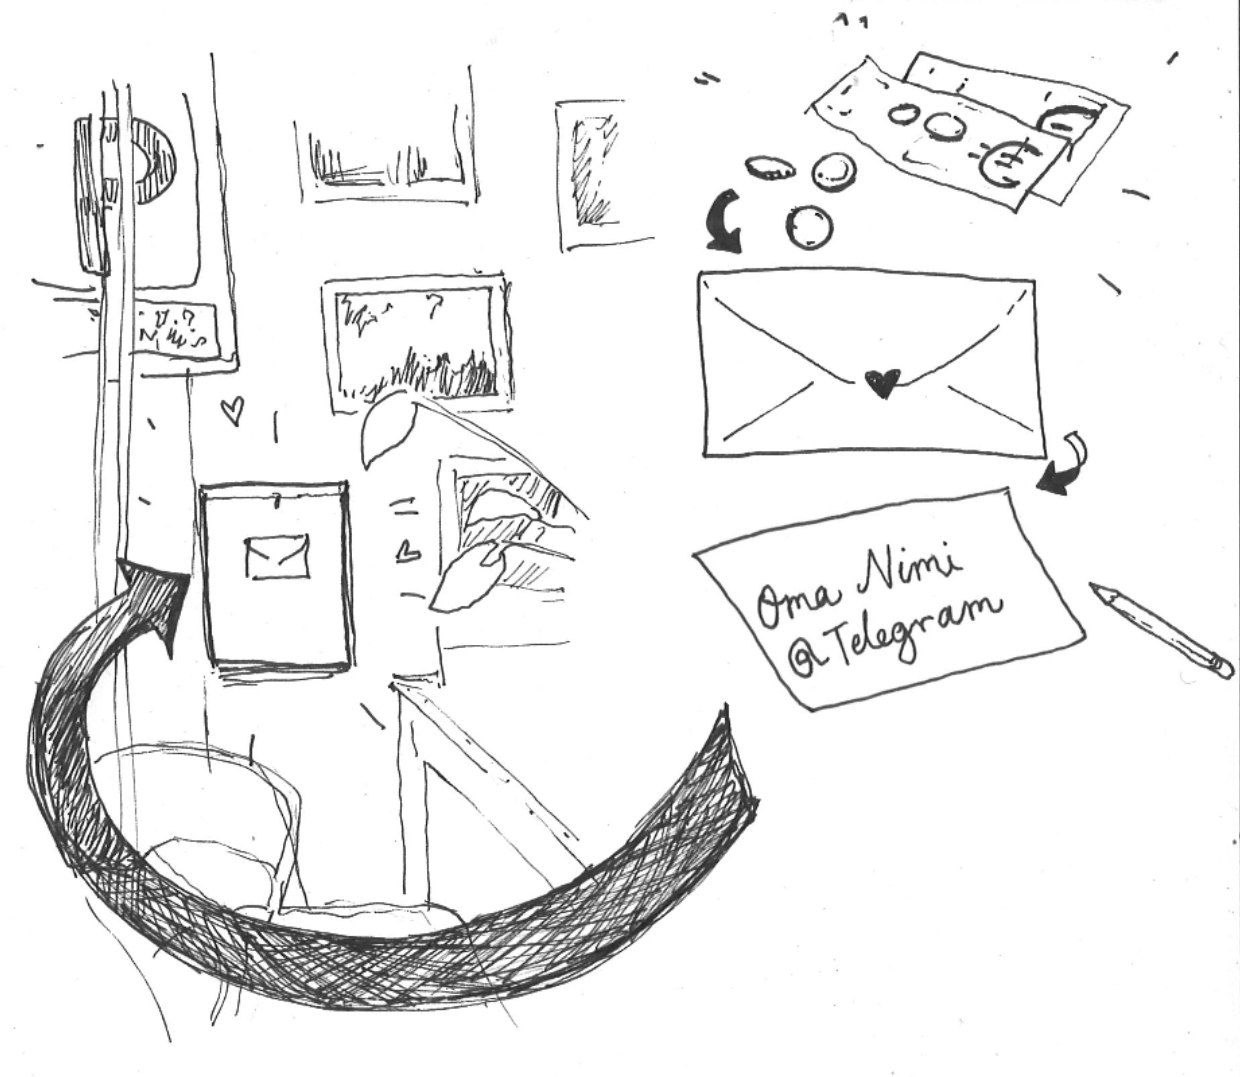 Oma Nimi
@Telegram